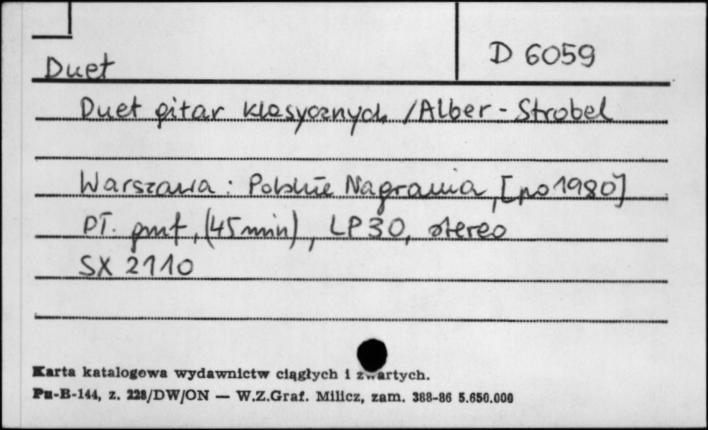 D 6059
Duet
Duet gitar klasycznych /Alber - Strobel
Warszawa : Polskie Nagrania, [po 1980]
PŁ. gmf, (45 min), LP 30, stereo
SX 2110
Karta katalogowa wydawnictw ciągłych i zwartych.
Pu-B-144, z. 228/DW/ON — W.Z.Graf. Milicz, zam. 388-86 5.650.000